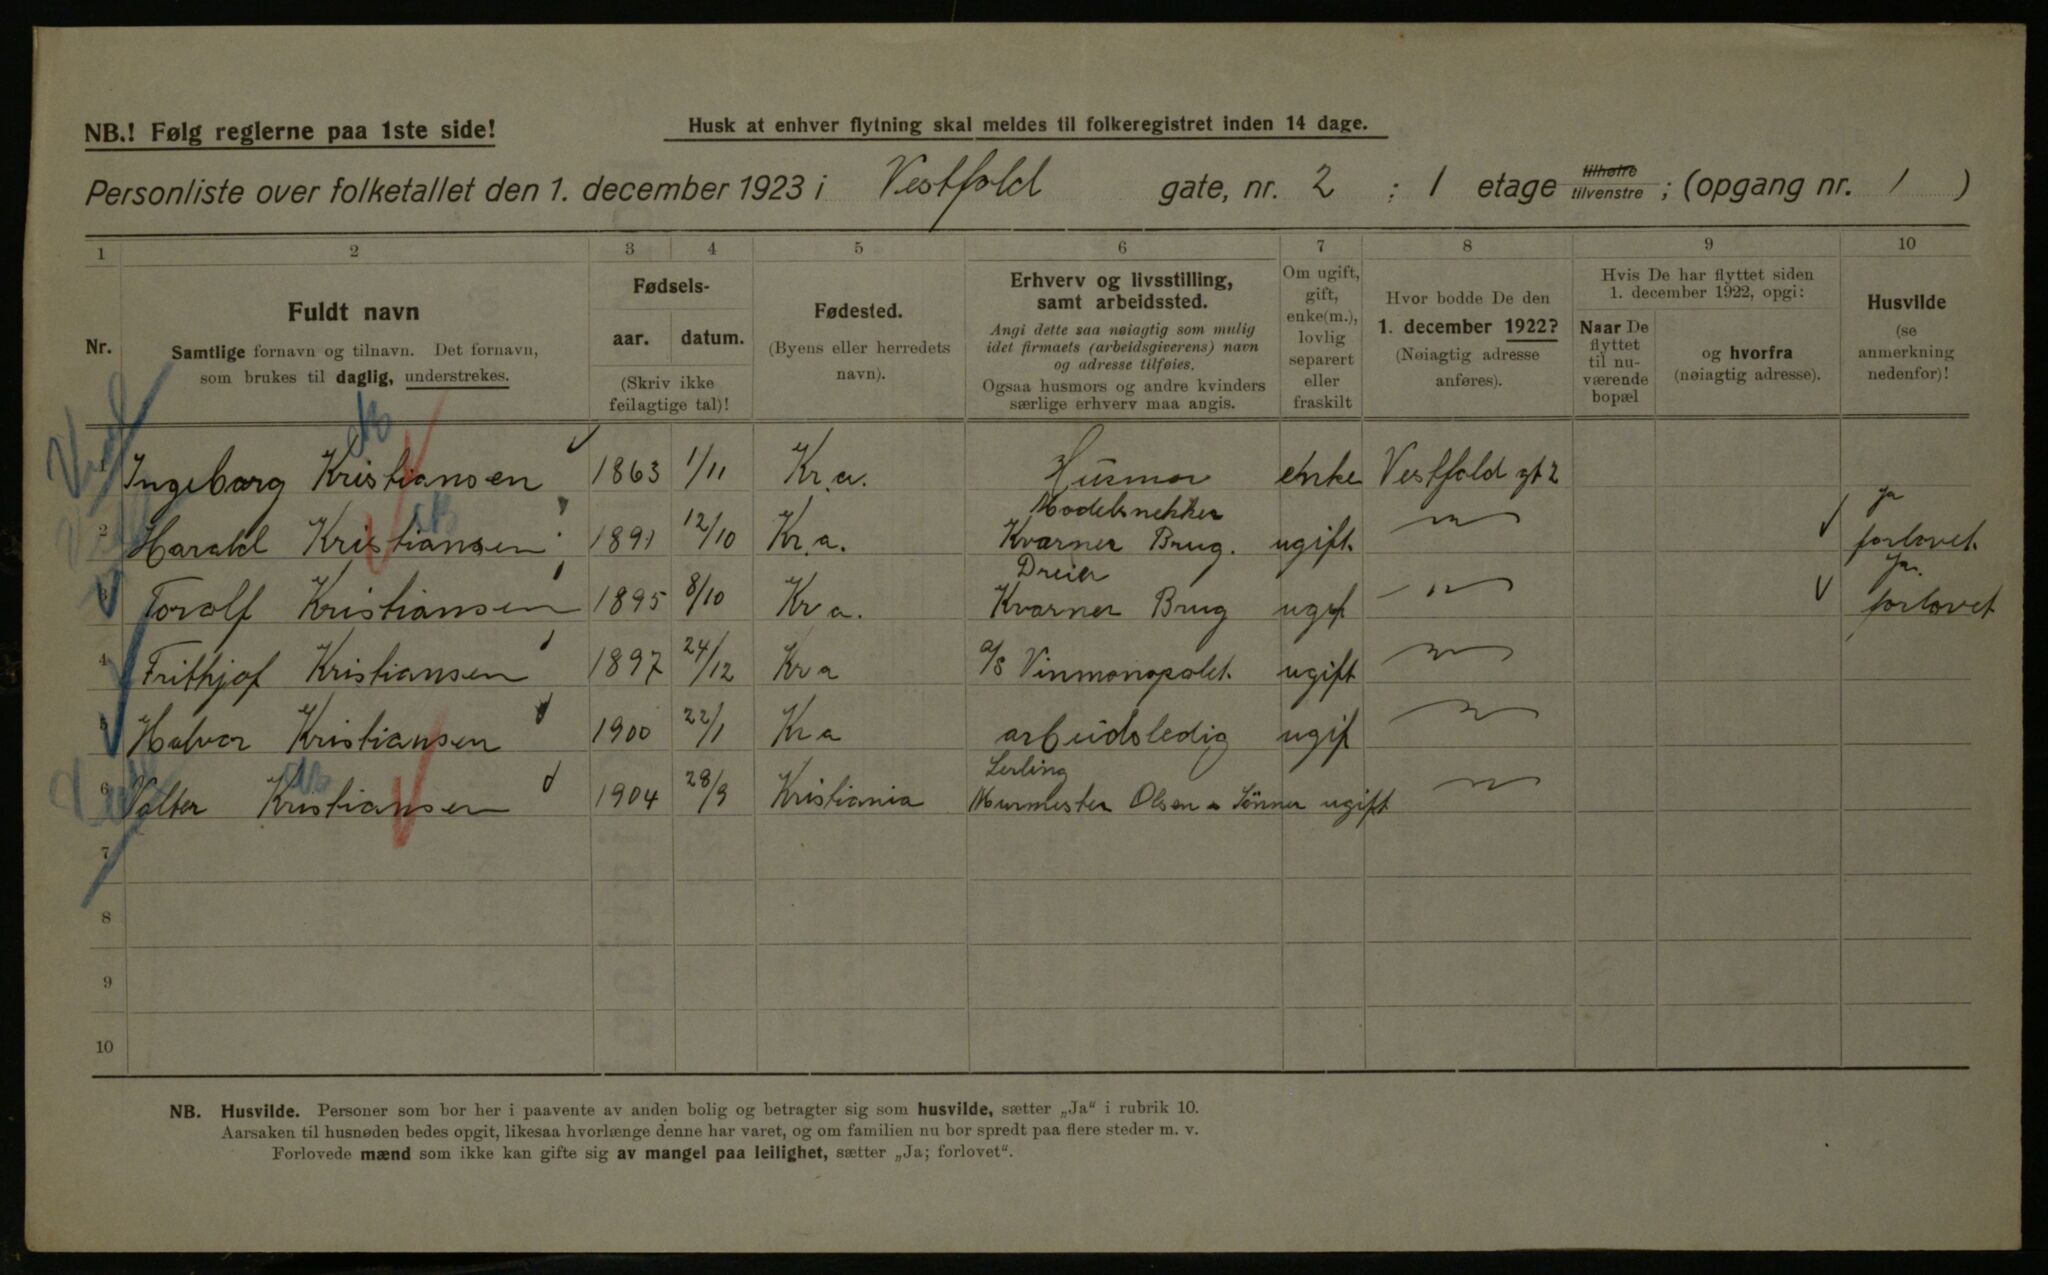 NB.! Følg reglerne paa 1ste side!
Husk at enhver flytning skal meldes til folkeregistret inden 14 dage.
Personliste over folketallet den 1. december 1923 i Vestfold gate, nr. 2 ; 1 etage tilhøire tilvenstre ; (opgang nr. 1 )
1 2 3 4 5 6 7 8 9 10
Nr.
Fuldt navn
Samtlige fornavn og tilnavn. Det fornavn,
som brukes til daglig, understrekes.
Fødsels-
aar. datum.
(Skriv ikke
feilagtige tal)!
Fødested.
(Byens eller herredets
navn).
Erhverv og livsstilling,
samt arbeidssted.
Angi dette saa nøiagtig som mulig
idet firmaets (arbeidsgiverens) navn
og adresse tilføies.
Ogsaa husmors og andre kvinders
særlige erhverv maa angis.
Om ugift,
gift,
enke(m.),
lovlig
separert
eller
fraskilt
Hvor bodde De den
1. december 1922?
(Nøiagtig adresse
anføres).
Hvis De har flyttet siden
1. december 1922, opgi:
Naar De
flyttet
til nu-
værende
bopæl
og hvorfra
(nøiagtig adresse).
Husvilde
(se
anmerkning
nedenfor)!
1 Ingeborg Kristiansen 1863 1/11 Kr.a. Husmor enke Vestfold gt 2
2 Harald Kristiansen 1891 12/10 Kr.a. Modelsnekker Kværner Brug. ugift. — " — Ja forlovet.
3 Torolf Kristiansen 1895 8/10 Kr a. Dreier Kværner Brug ugif — " — Ja. forlovet
4 Frithjof Kristiansen 1897 24/12 Kr a a/s Vinmonopolet. ugift — " —
5 Halvor Kristiansen 1900 22/1 Kr a arbeidsledig ugif — " —
6 Valter Kristiansen 1904 28/9 Kristiania Lerling Murmester Olsen & Sønner ugift — " —
7
8
9
10
NB. Husvilde. Personer som bor her i paavente av anden bolig og betragter sig som husvilde, sætter „Ja“ i rubrik 10.
Aarsaken til husnøden bedes opgit, likesaa hvorlænge denne har varet, og om familien nu bor spredt paa flere steder m. v.
Forlovede mænd som ikke kan gifte sig av mangel paa leilighet, sætter „Ja; forlovet“.